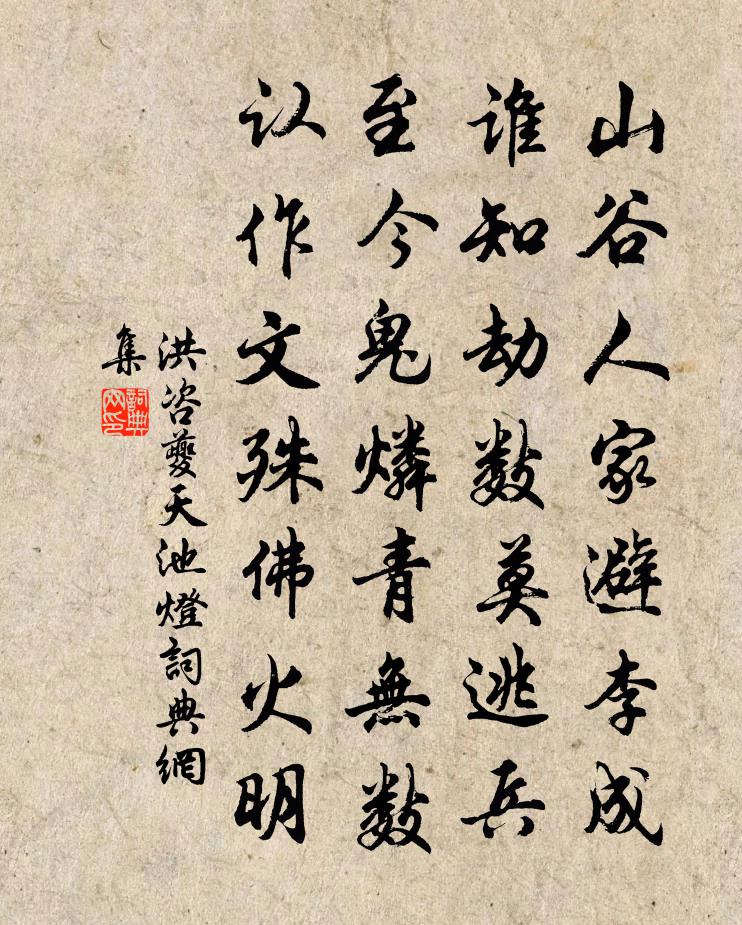 山谷人家避李成
谁知劫数莫逃兵
至今鬼燐青無数
认作文殊佛火明
洪咨夔天池燈詞典網
集
詞典
网印